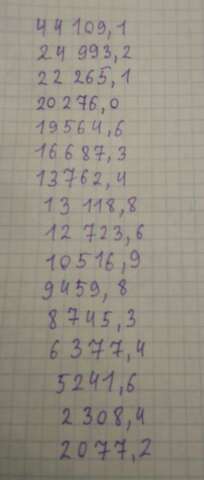 44 109,1
24 993,2
22 265,1
20 276,0
19 564,6
16 687,3
13 762,4
13 118,8
12 723,6
10 516,9
9459,8
8 745,3
6 377,4
5241,6
2 308,4
2077,2